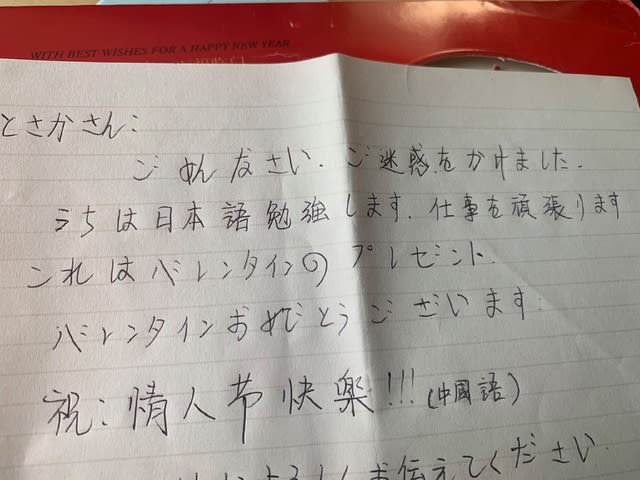 WITH BEST WISHES FOR A HAPPY NEW YEAR
とさかさん:
ごめんなさい、ご迷惑をかけました.
うちは日本語勉強します、仕事を頑張ります
これはバレンタインの プレゼント.
バレンタインおめどとうございます.
祝:情人节快楽!!!(中國語)
よろしくお伝えてください.